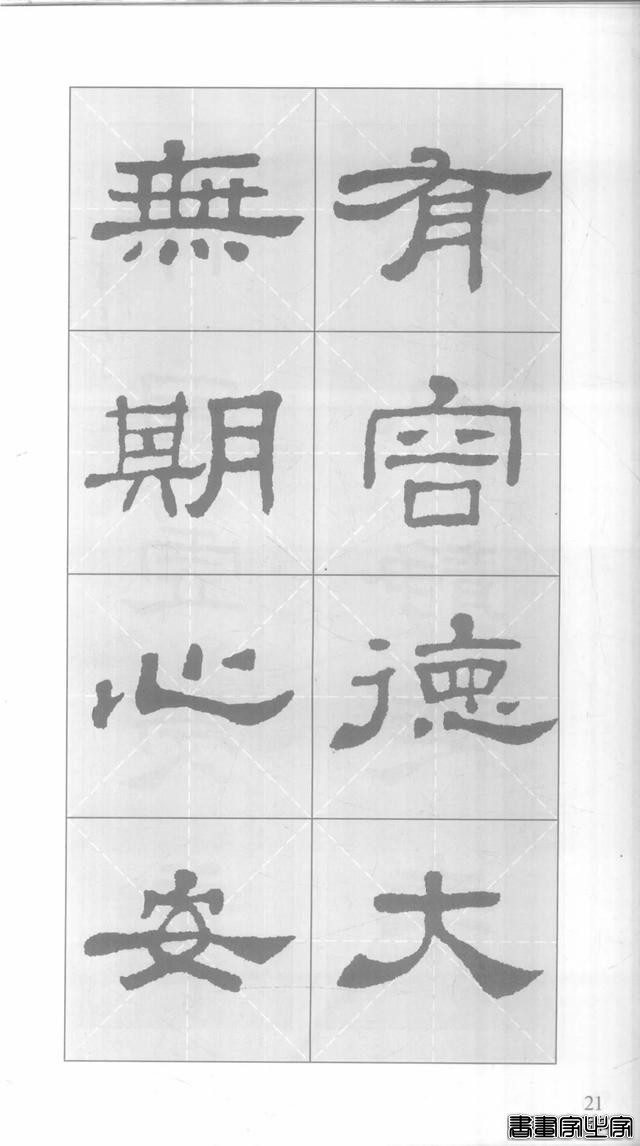 有容德大
無期心安
21
書畫家必字